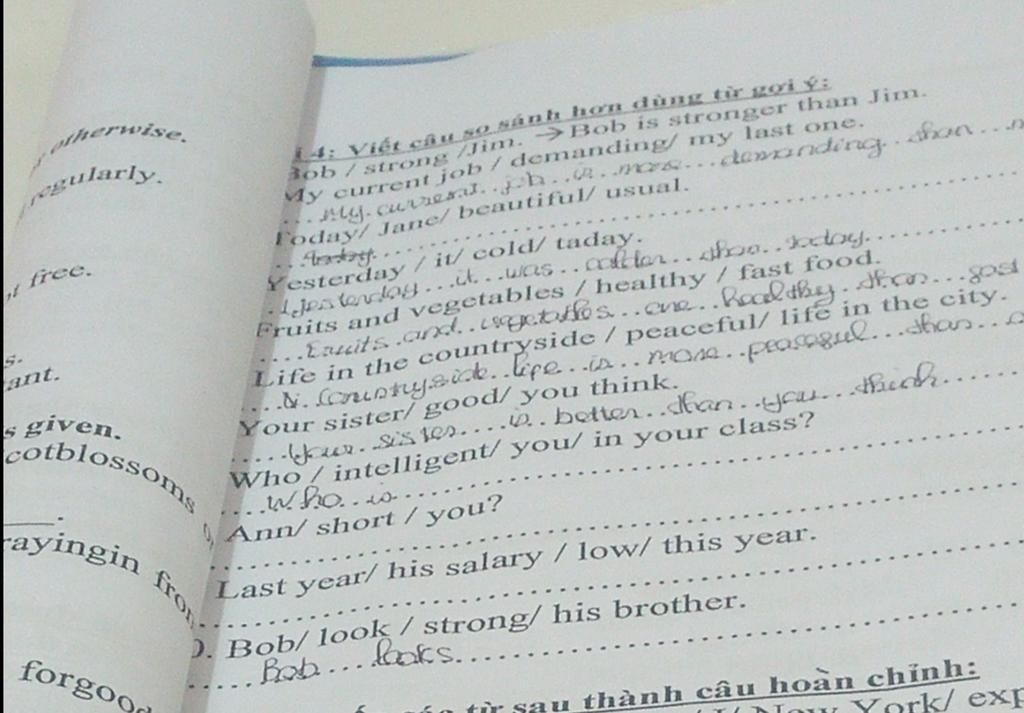 otherwise.
regularly.
free.
s.
ant.
s given.
cotblossoms
rayingin from
forgood
4: Viết câu so sánh hơn dùng từ gợi ý:
Bob / strong /Jim. → Bob is stronger than Jim.
My current job / demanding/ my last one.
My current job is more demanding than
Today/ Jane/ beautiful/ usual.
today
Yesterday / it/ cold/ taday.
Yesterday it was colder than today
Fruits and vegetables / healthy / fast food.
Fruits and vegetables are healthy than fast
Life in the countryside / peaceful/ life in the city.
Countryside life is more peaceful than
Your sister/ good/ you think.
Your sister is better than you think
Who / intelligent/ you/ in your class?
Who is
Ann/ short / you?
Last year/ his salary / low/ this year.
0. Bob/ look / strong/ his brother.
Bob looks
từ sau thành câu hoàn chỉnh:
New York/ exp